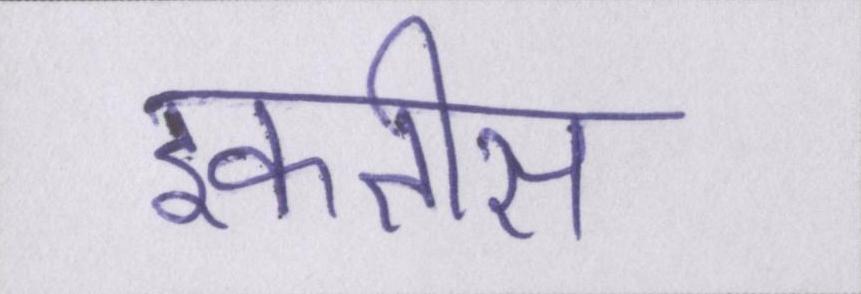 इकतीस